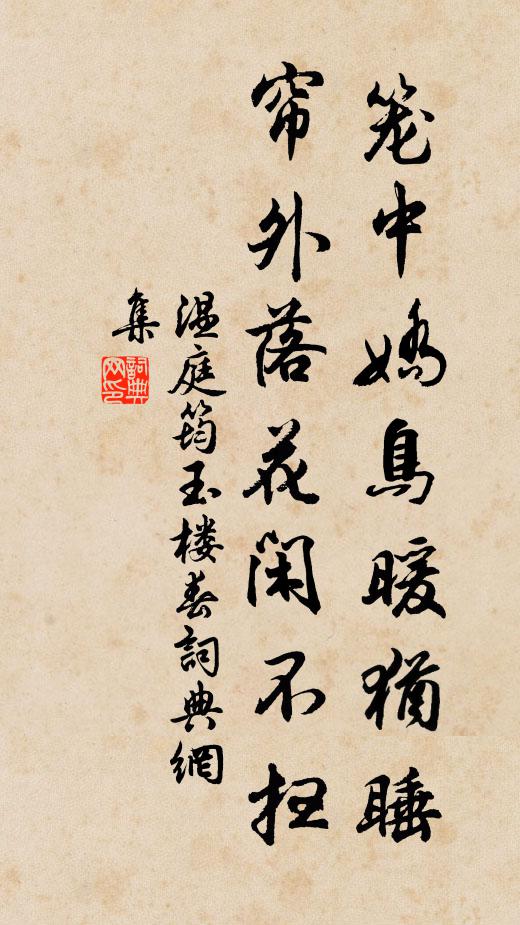 笼中娇鸟暖猶睡
帘外落花闲不扫
温庭筠玉楼春詞典網
集
詞典
网印